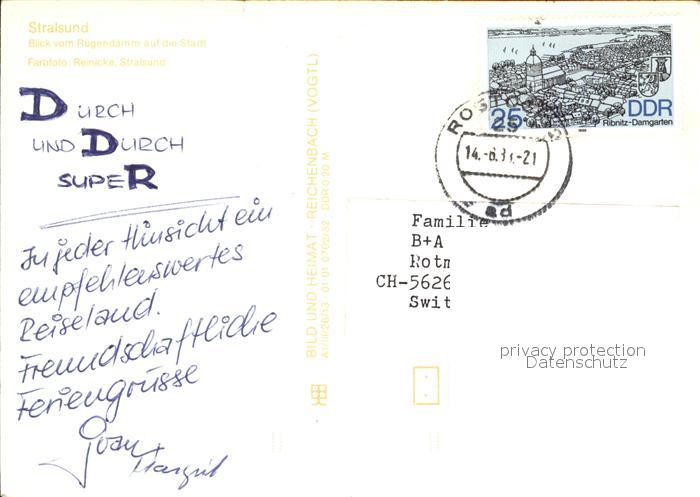 Stralsund
Blick vom Rügendamm auf die Stadt
Farbfoto: Reinicke, Stralsund
DURCH
UND DURCH
SUPER
In jeder Hinsicht ein
empfehlenswertes
Reiseland.
Freundschaftliche
Feriengrüsse
Joan +
Margrit
BILD UND HEIMAT · REICHENBACH (VOGTL)
A1/III/26/13 · 01 01 0702/32 · DDR 0,20 M
25
DDR
Ribnitz-Damgarten
ROSTO
25
14.-6.
-21
ad
Familie
B+A
Rotm
CH-5626
Swit
privacy protection
Datenschutz